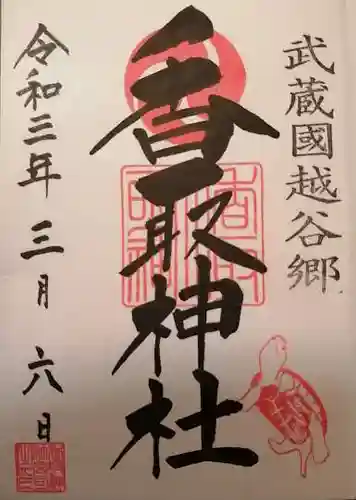 武蔵國越谷郷
香取神社
令和三年三月六日